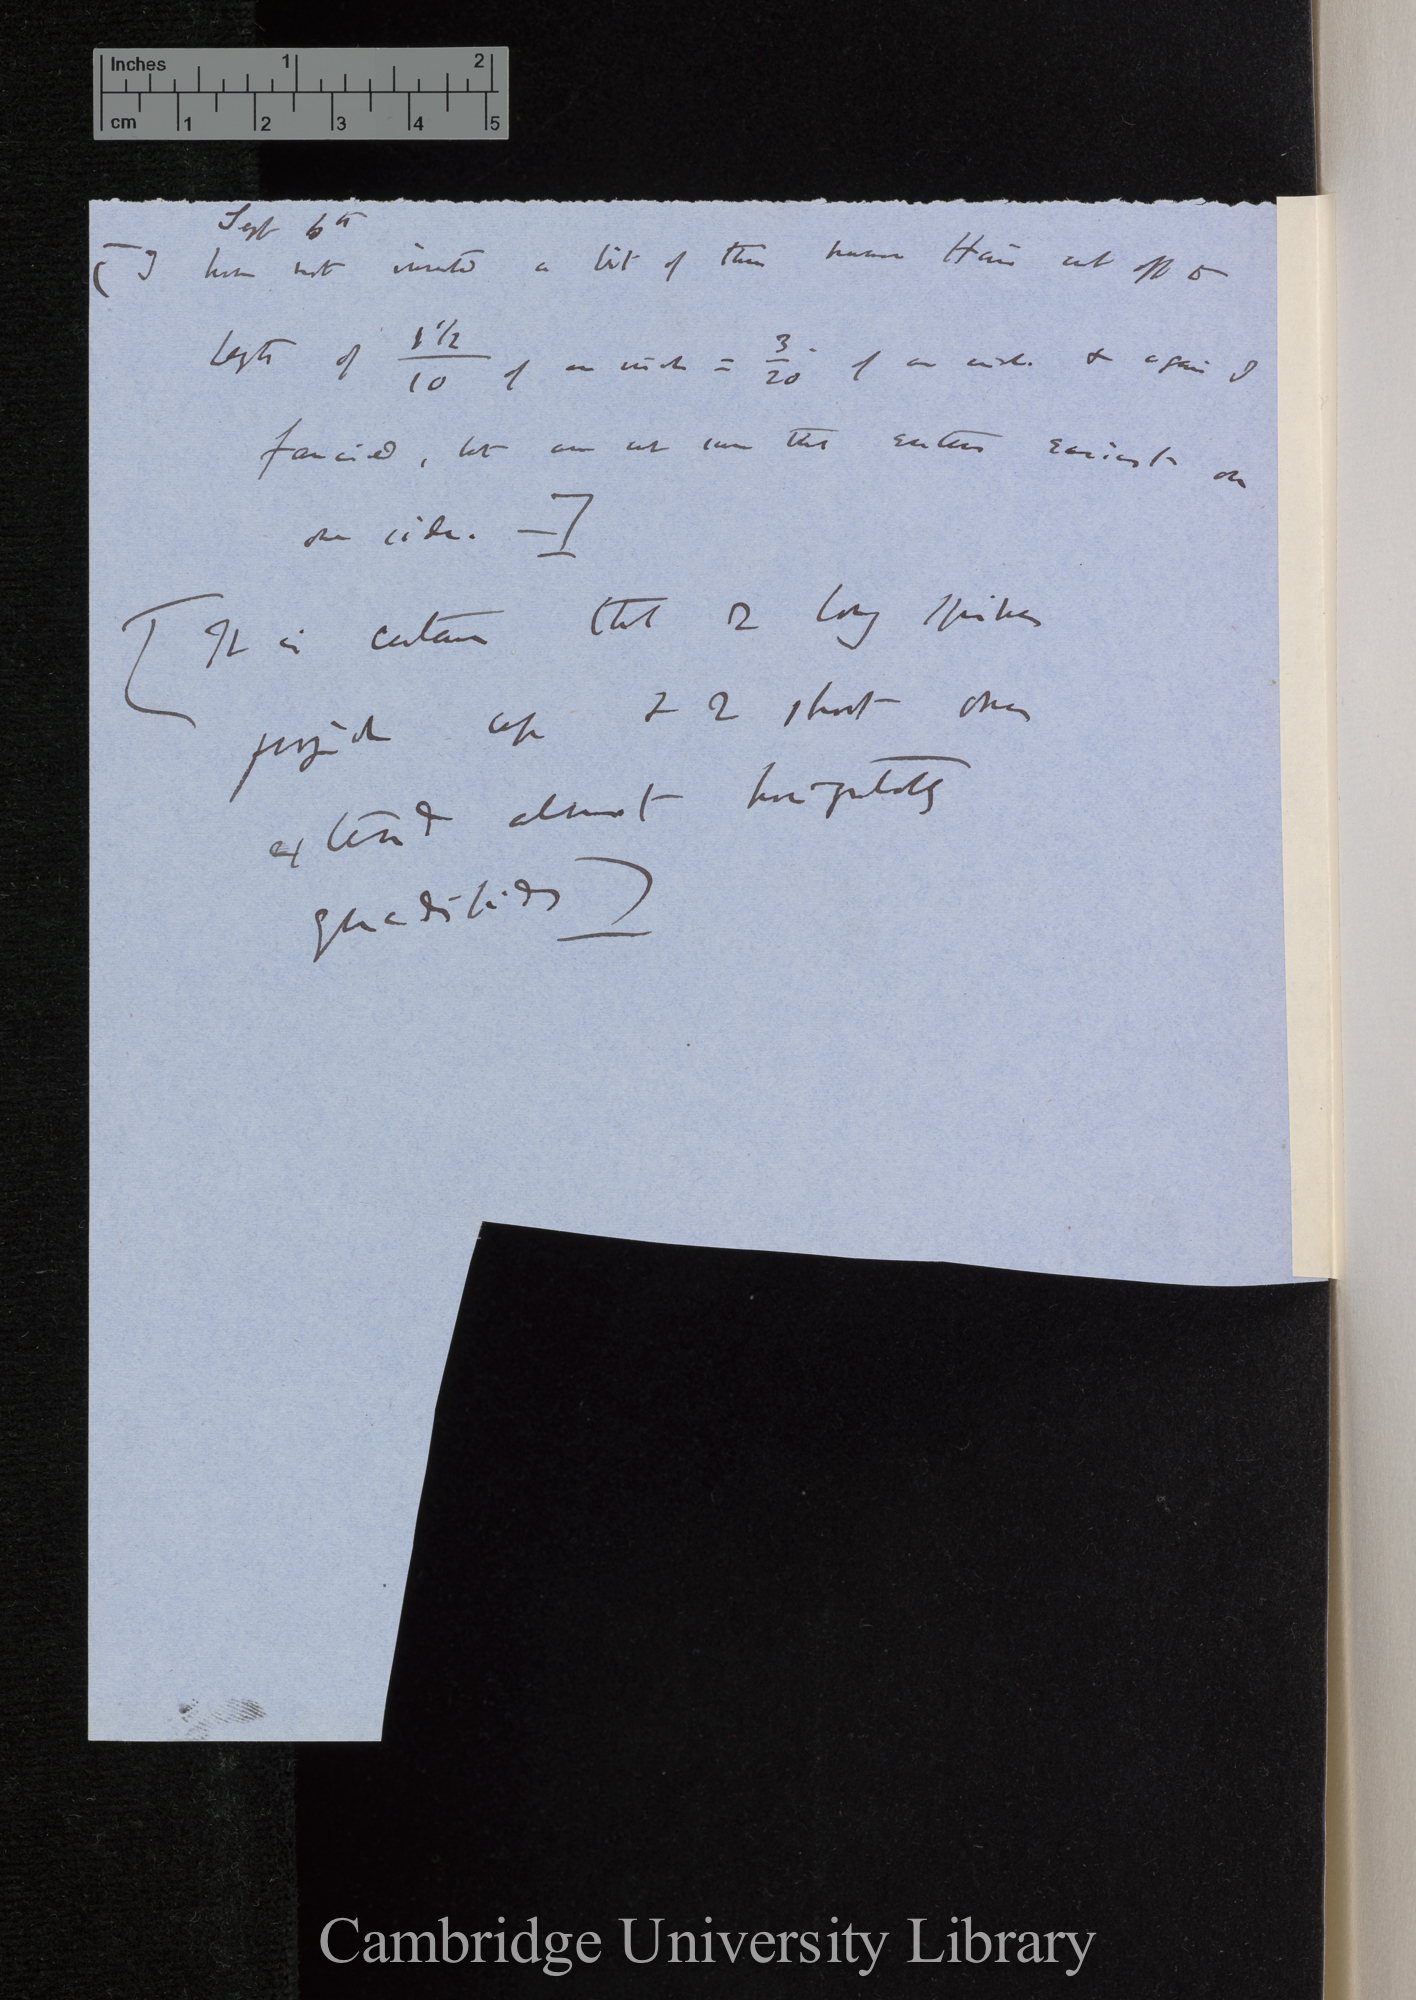 Inches 1 2
cm 1 2 3 4 5
Sept 6th
[I have not inserted a bit of thin human Hair cut off to
length of 1 1/2 / 10 of an inch = 3/20 of an inch. & again I
fancied, but am not sure that enters easiest on
one side. —]
[It is certain that 2 long spines
project up & 2 short ones
extend almost
quadrifids]
Cambridge University Library